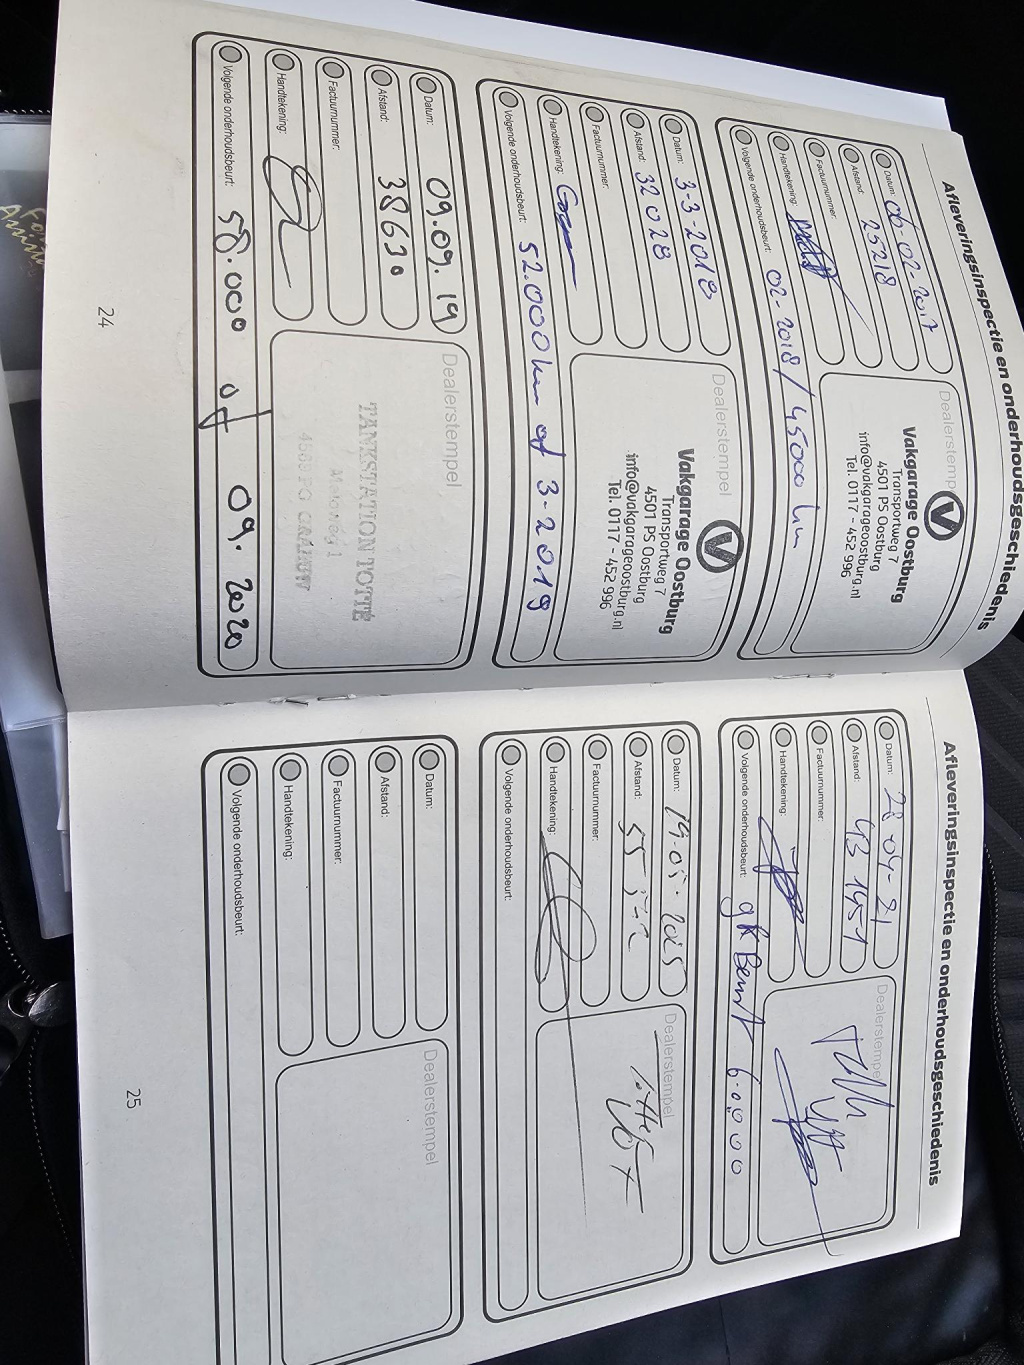 Afleveringsinspectie en onderhoudsgeschiedenis
Datum: 09-02-2017
Afstand: 25218
Factuurnummer:
Handtekening:
Volgende onderhoudsbeurt: 02-2018/45000 km
Dealerstemp
Vakgarage Oostburg
Transportweg 7
4501 PS Oostburg
info@vakgarageoostburg.nl
Tel. 0117 - 452 996
Datum: 3-3-2018
Afstand: 32028
Factuurnummer:
Handtekening:
Volgende onderhoudsbeurt: 52.000km of 3-2019
Dealerstempel
Vakgarage Oostburg
Transportweg 7
4501 PS Oostburg
info@vakgarageoostburg.nl
Tel. 0117 - 452 996
Datum: 09.09.19
Afstand: 38630
Factuurnummer:
Handtekening:
Volgende onderhoudsbeurt: 58.000 of 09.2020
Dealerstempel
TANKSTATION TOTTÉ
24
Afleveringsinspectie en onderhoudsgeschiedenis
Datum: 28-04-21
Afstand:
Factuurnummer:
Handtekening:
Volgende onderhoudsbeurt:
Dealerstempel
Datum:
Afstand:
Factuurnummer:
Handtekening:
Volgende onderhoudsbeurt:
Dealerstempel
Datum:
Afstand:
Factuurnummer:
Handtekening:
Volgende onderhoudsbeurt:
Dealerstempel
25